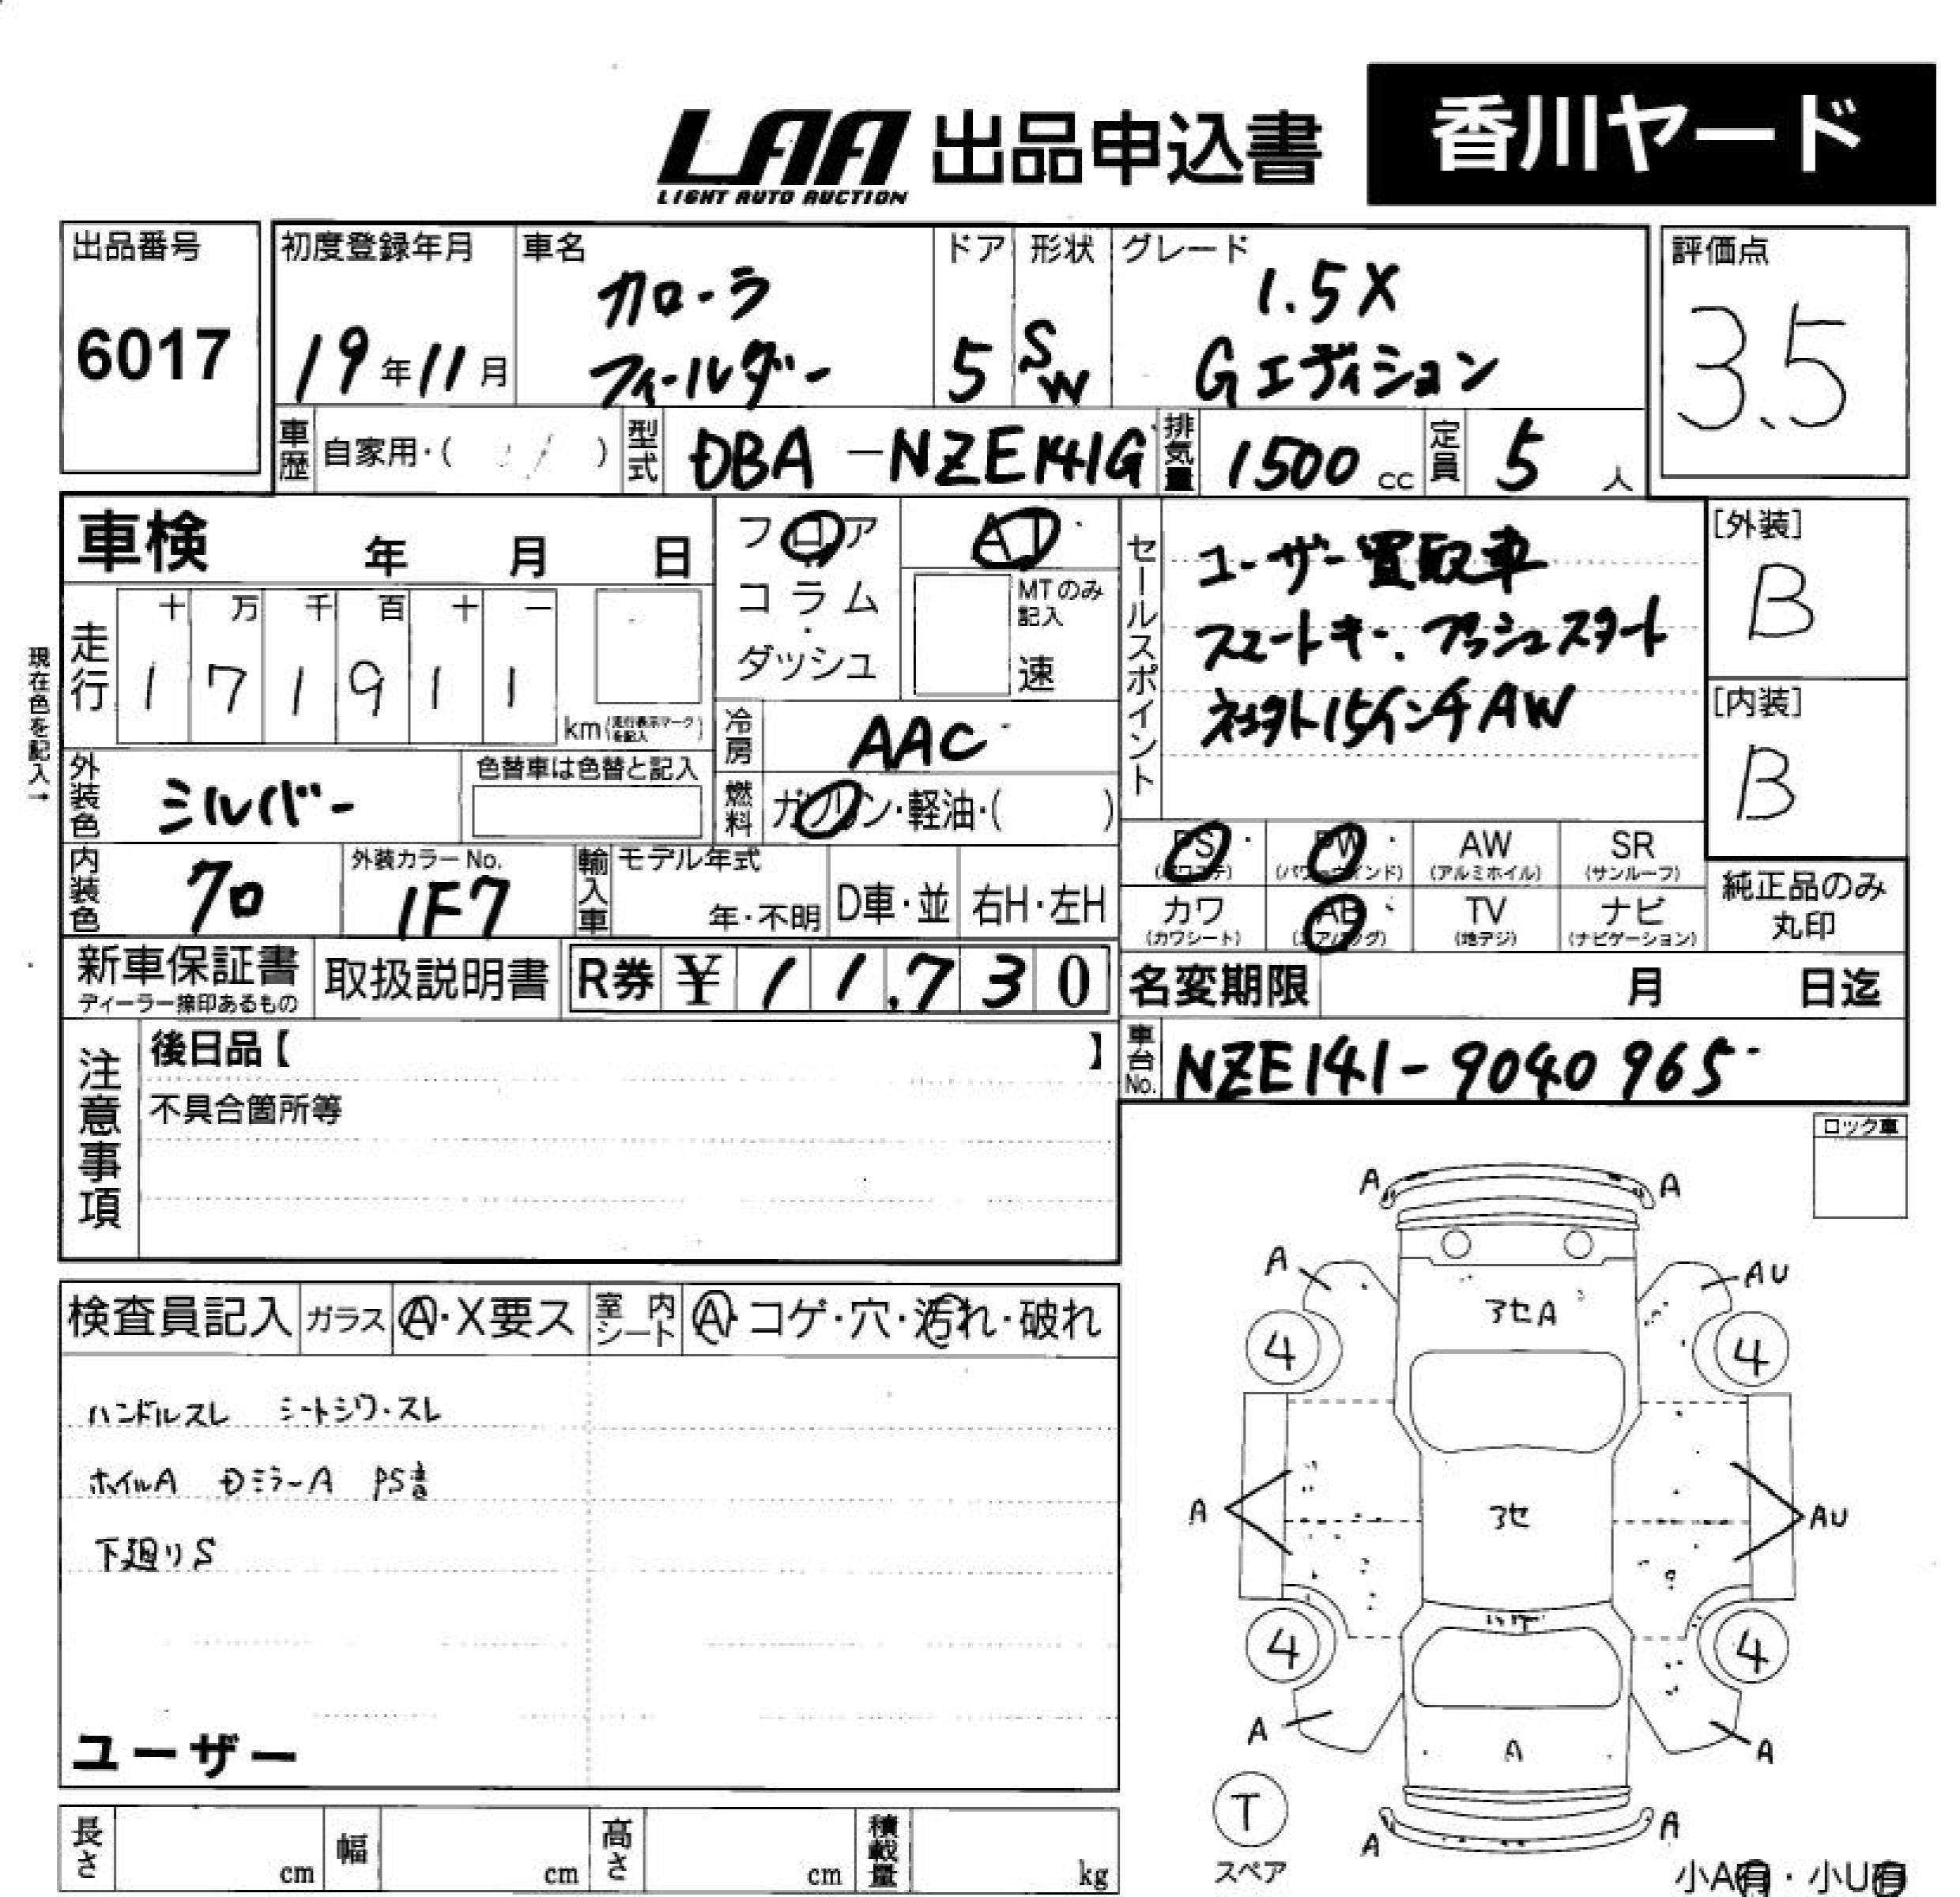 LAA 出品申込書 香川ヤード
LIGHT AUTO AUCTION
出品番号 6017
初度登録年月 19年11月
車名 カローラ
フィールダー
ドア 5
形状 SW
グレード 1.5X
Gエディション
評価点 3.5
車歴 自家用・( )
型式 DBA-NZE141G
排気量 1500 cc
定員 5 人
車検 年 月 日
フロア
コラム
・
ダッシュ
AT
MTのみ
記入
速
現在色を記入→
走行 十 万 千 百 十 一
1 7 1 9 1 1
km (走行表示マークを記入)
冷房 AAC
外装色 シルバー
色替車は色替と記入
燃料 ガソリン・軽油・( )
内装色 70
外装カラーNo.
1F7
輸入車 モデル年式
年・不明 D車・並 右H・左H
セールスポイント
ユーザー買取車
スマートキー. プッシュスタート
社外15インチAW
[外装]
B
[内装]
B
PS (パワステ) PW (パワーウインド) AW (アルミホイル) SR (サンルーフ)
カワ (カワシート) AB (エアバッグ) TV (地デジ) ナビ (ナビゲーション)
純正品のみ
丸印
新車保証書
ディーラー捺印あるもの
取扱説明書
R券 ¥ 11,730
名変期限 月 日迄
車台No. NZE141-9040965
注意事項
後日品【 】
不具合箇所等
ロック車
検査員記入 ガラス A・X要ス 室内シート A・コゲ・穴・汚れ・破れ
ハンドルスレ シートシワ・スレ
ホイルA DミラーA PS音
下廻りS
ユーザー
A A
A AU
アセA
4 4
A アセ AU
4 4
A A A
T
スペア
A A
小A有・小U有
長さ cm 幅 cm 高さ cm 積載量 kg